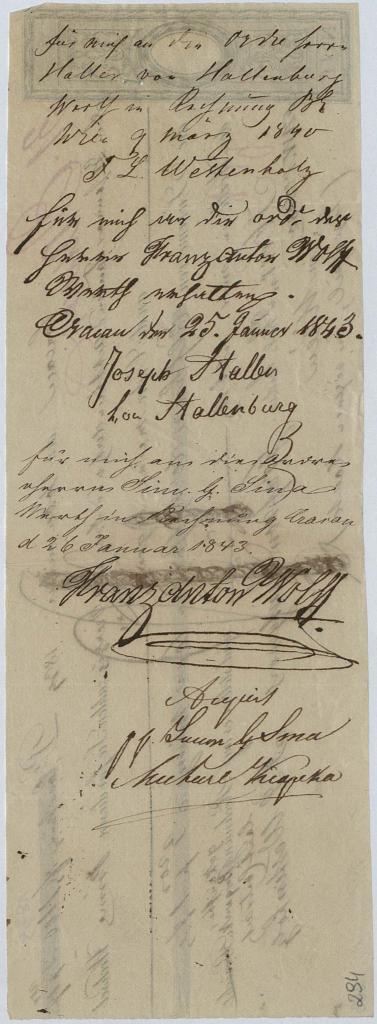 für mich an die Ordre Herrn
Haller von Hallenburg
Werth in Rechnung
Wien 9 März 1840
J. L. Westenholz
für mich an die Ord. des
Herrn Franz Anton Wolff
Werth erhalten.
Cracau den 25. Jänner 1843.
Joseph Haller
von Hallenburg
für mich an die Ordre
Herrn Sim. G. Sina
Werth in Rechnung Cracau
d 26 Januar 1843.
Franz Anton Wolff
pp. Simon G Sina
Michael
284